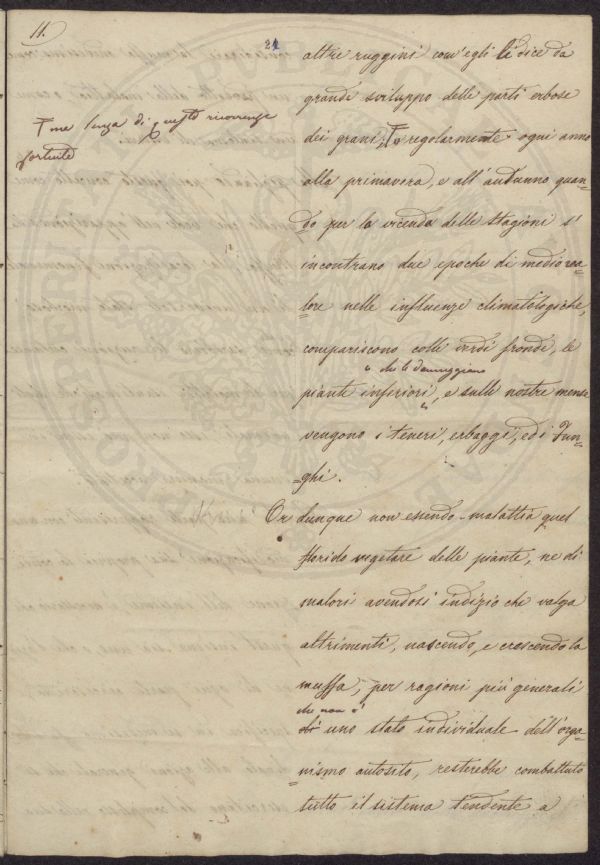 11.
21
altre ruggini com'egli le dice da
grande sviluppo delle parti erbose
dei grani, Ŧ e regolarmente ogni anno
Ŧ ma senza di queste ricorrenze
fortuite
alla primavera, e all'autunno quan-
-do per la vicenda delle stagioni s'
incontrano due epoche di medio ca-
-lore nelle influenze climatologiche,
compariscono colli verdi frondi, le
" che le danneggiano
piante inferiori, " e sulle nostre mense
vengono i teneri, erbaggi, ed i Fun-
-ghi.
Or dunque non essendo malattia quel
florido vegetare delle piante, ne di
malori avendosi indizio che valga
altrimenti, nascendo, e crescendo la
muffa, per ragioni più generali
che non è
di uno stato individuale dell'orga-
-nismo autosito, resterebbe combattuto
tutto il sistema tendente a